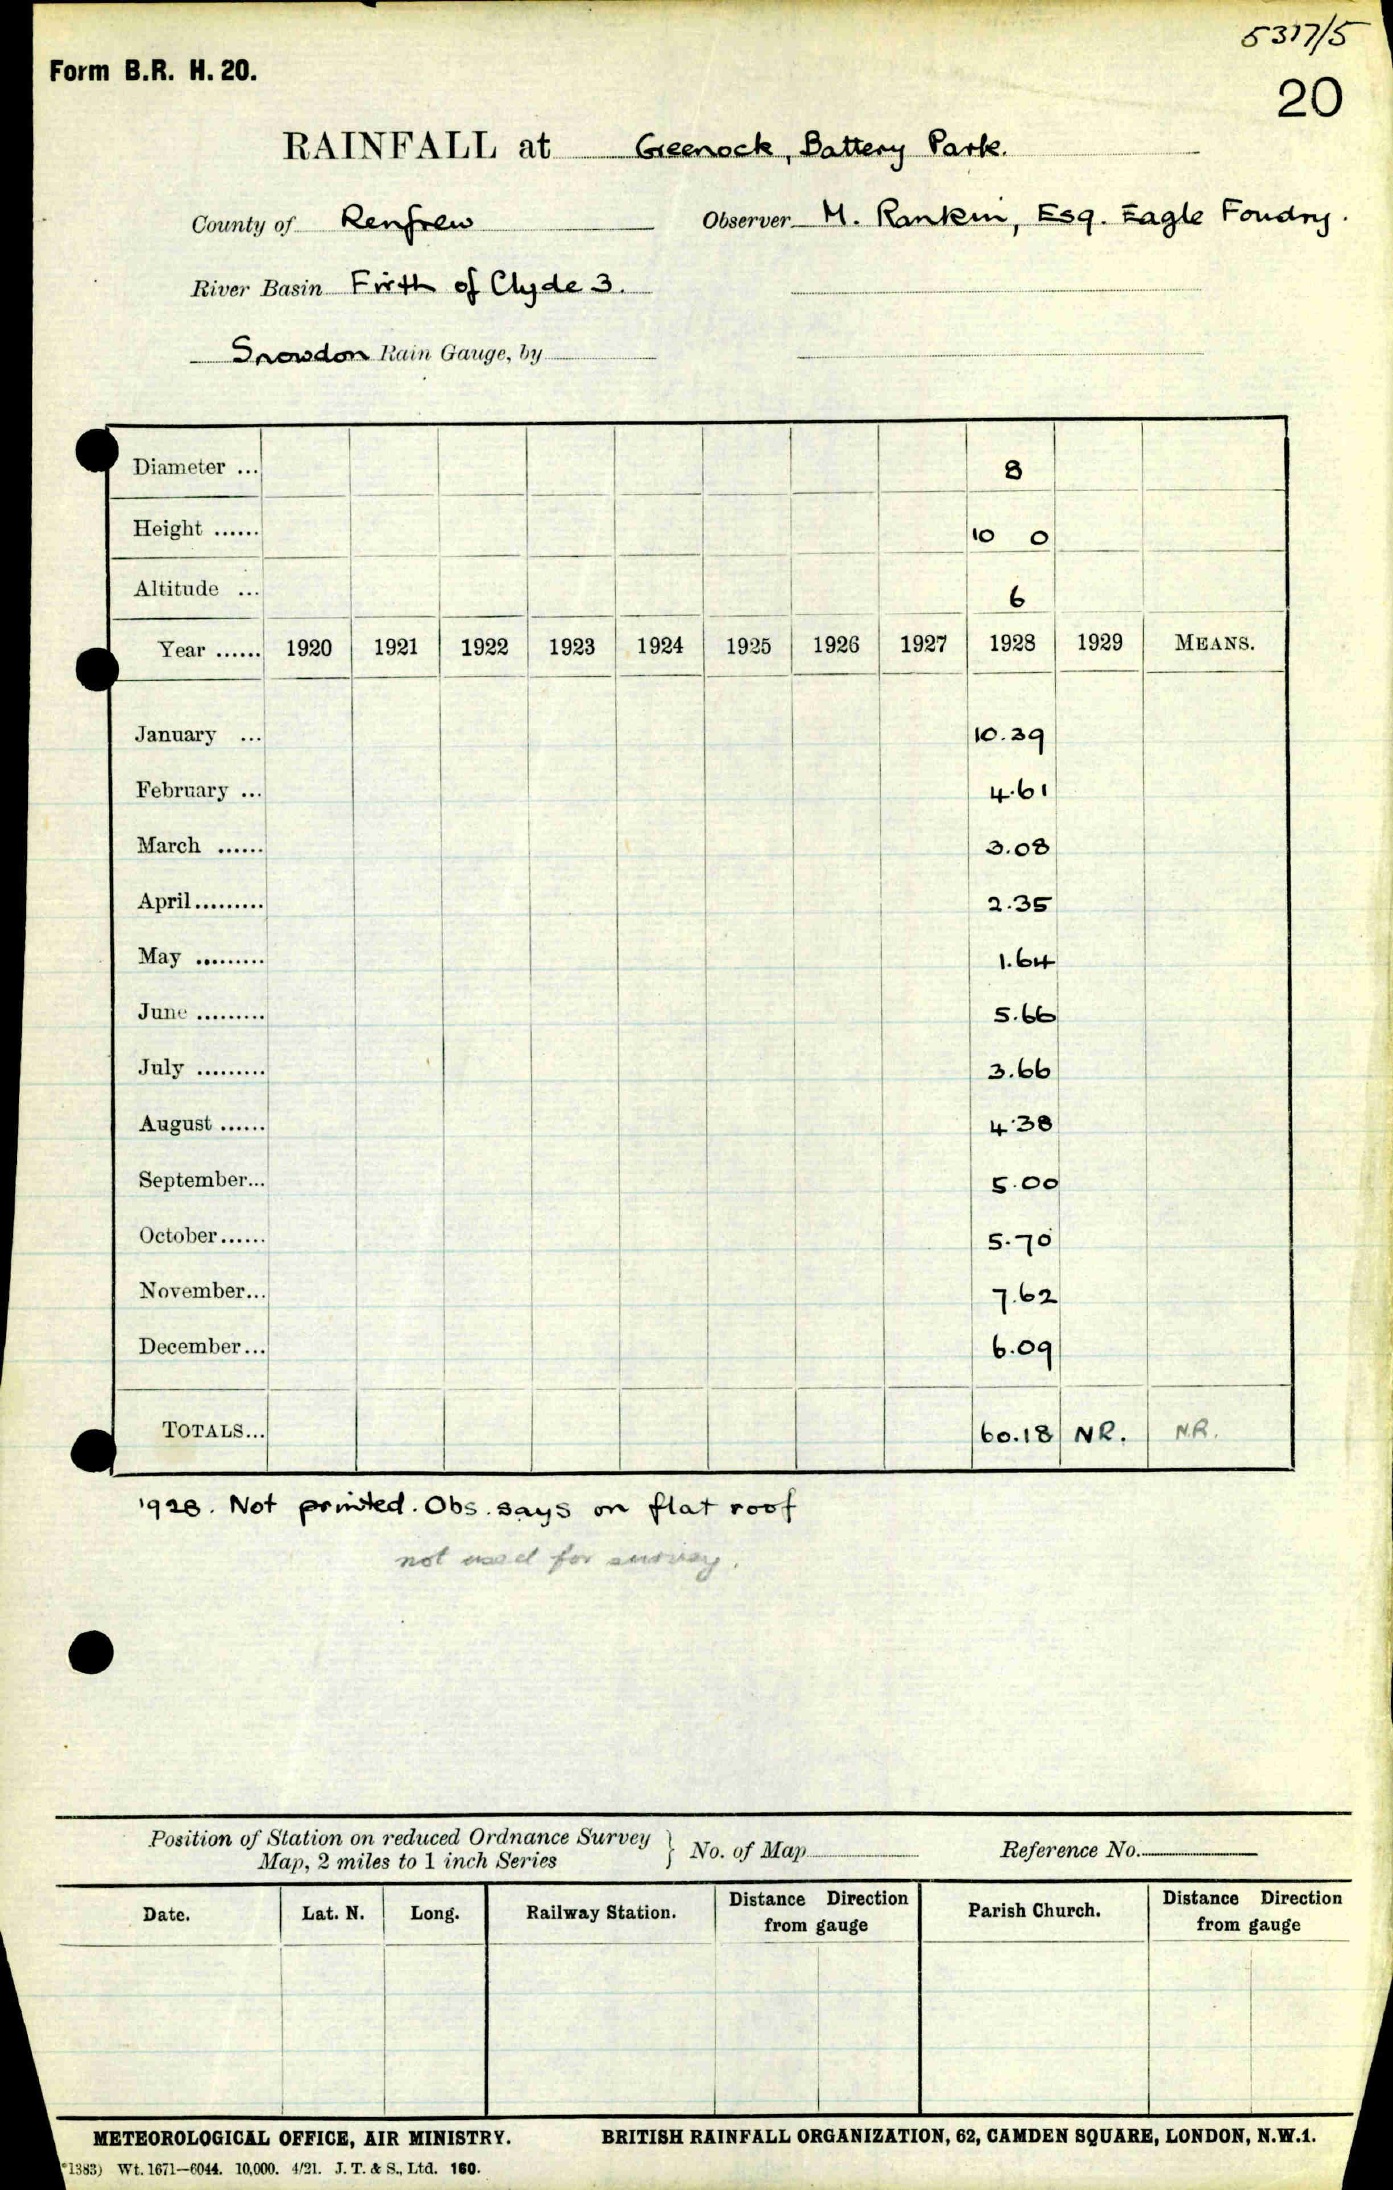 5317/5
Form B.R. H. 20.
20
RAINFALL at Greenock, Battery Park.
County of Renfrew Observer M. Rankin, Esq. Eagle Foundry.
River Basin Firth of Clyde 3.
Snowdon Rain Gauge, by
Diameter ... 8
Height ...... 10 0
Altitude ... 6
Year ...... 1920 1921 1922 1923 1924 1925 1926 1927 1928 1929 MEANS.
January ... 10.39
February ... 4.61
March ...... 3.08
April......... 2.35
May ......... 1.64
June ......... 5.66
July ......... 3.66
August ...... 4.38
September... 5.00
October...... 5.70
November... 7.62
December... 6.09
TOTALS... 60.18 NR. N.R.
1928. Not printed. Obs. says on flat roof
not used for survey.
Position of Station on reduced Ordnance Survey
Map, 2 miles to 1 inch Series } No. of Map Reference No.
Date. Lat. N. Long. Railway Station. Distance Direction from gauge Parish Church. Distance Direction from gauge
METEOROLOGICAL OFFICE, AIR MINISTRY. BRITISH RAINFALL ORGANIZATION, 62, CAMDEN SQUARE, LONDON, N.W.1.
*1383) Wt. 1671—6044. 10,000. 4/21. J. T. & S., Ltd. 160.